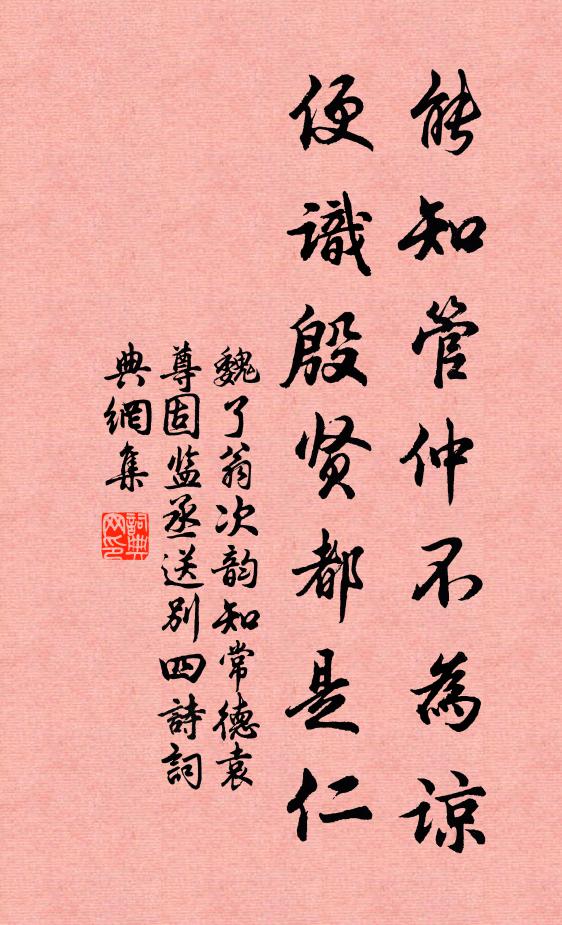 能知管仲不為谅
便識殷贤都是仁
魏了翁次韵知常德袁
尊固监丞送别四詩詞
典網集
詞典
网印